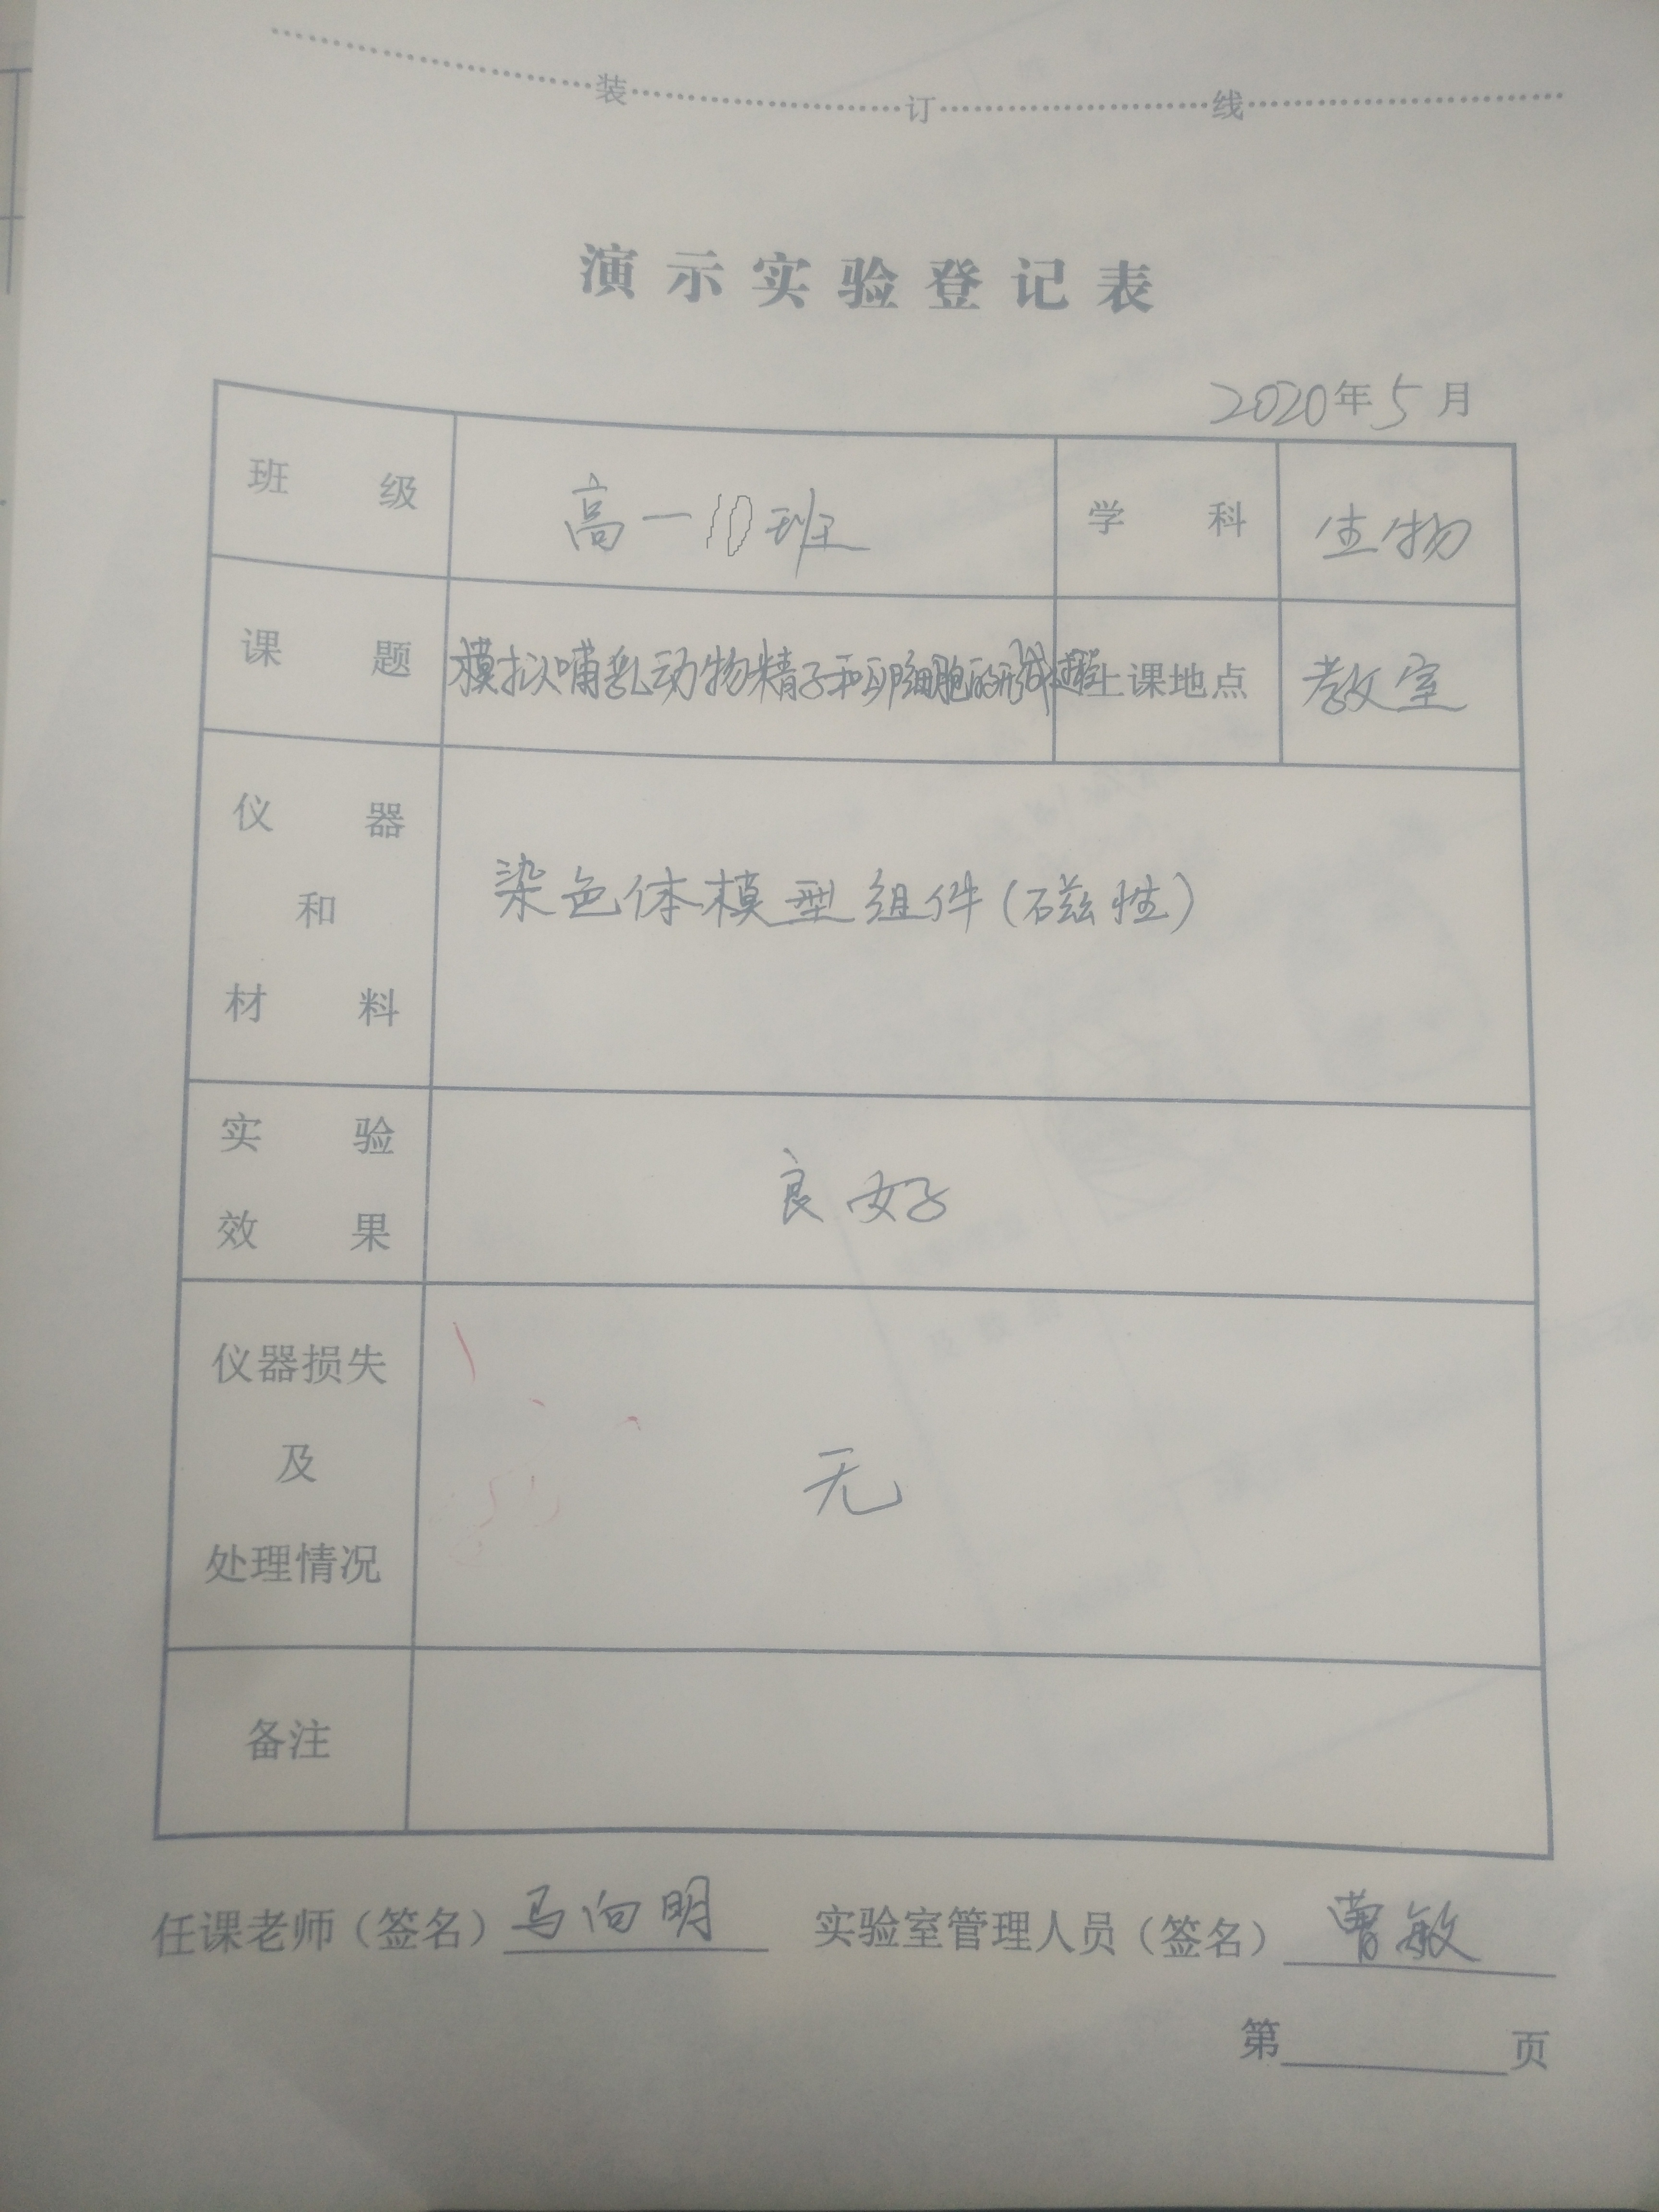 装 订 线
演示实验登记表
2020年5月
班级 高一10班 学科 生物
课题 模拟哺乳动物精子和卵细胞的形成过程 上课地点 教室
仪器
和
材料
染色体模型组件(磁性)
实验
效果
良好
仪器损失
及
处理情况
无
备注
任课老师（签名）马向明 实验室管理人员（签名）曹敏
第 页